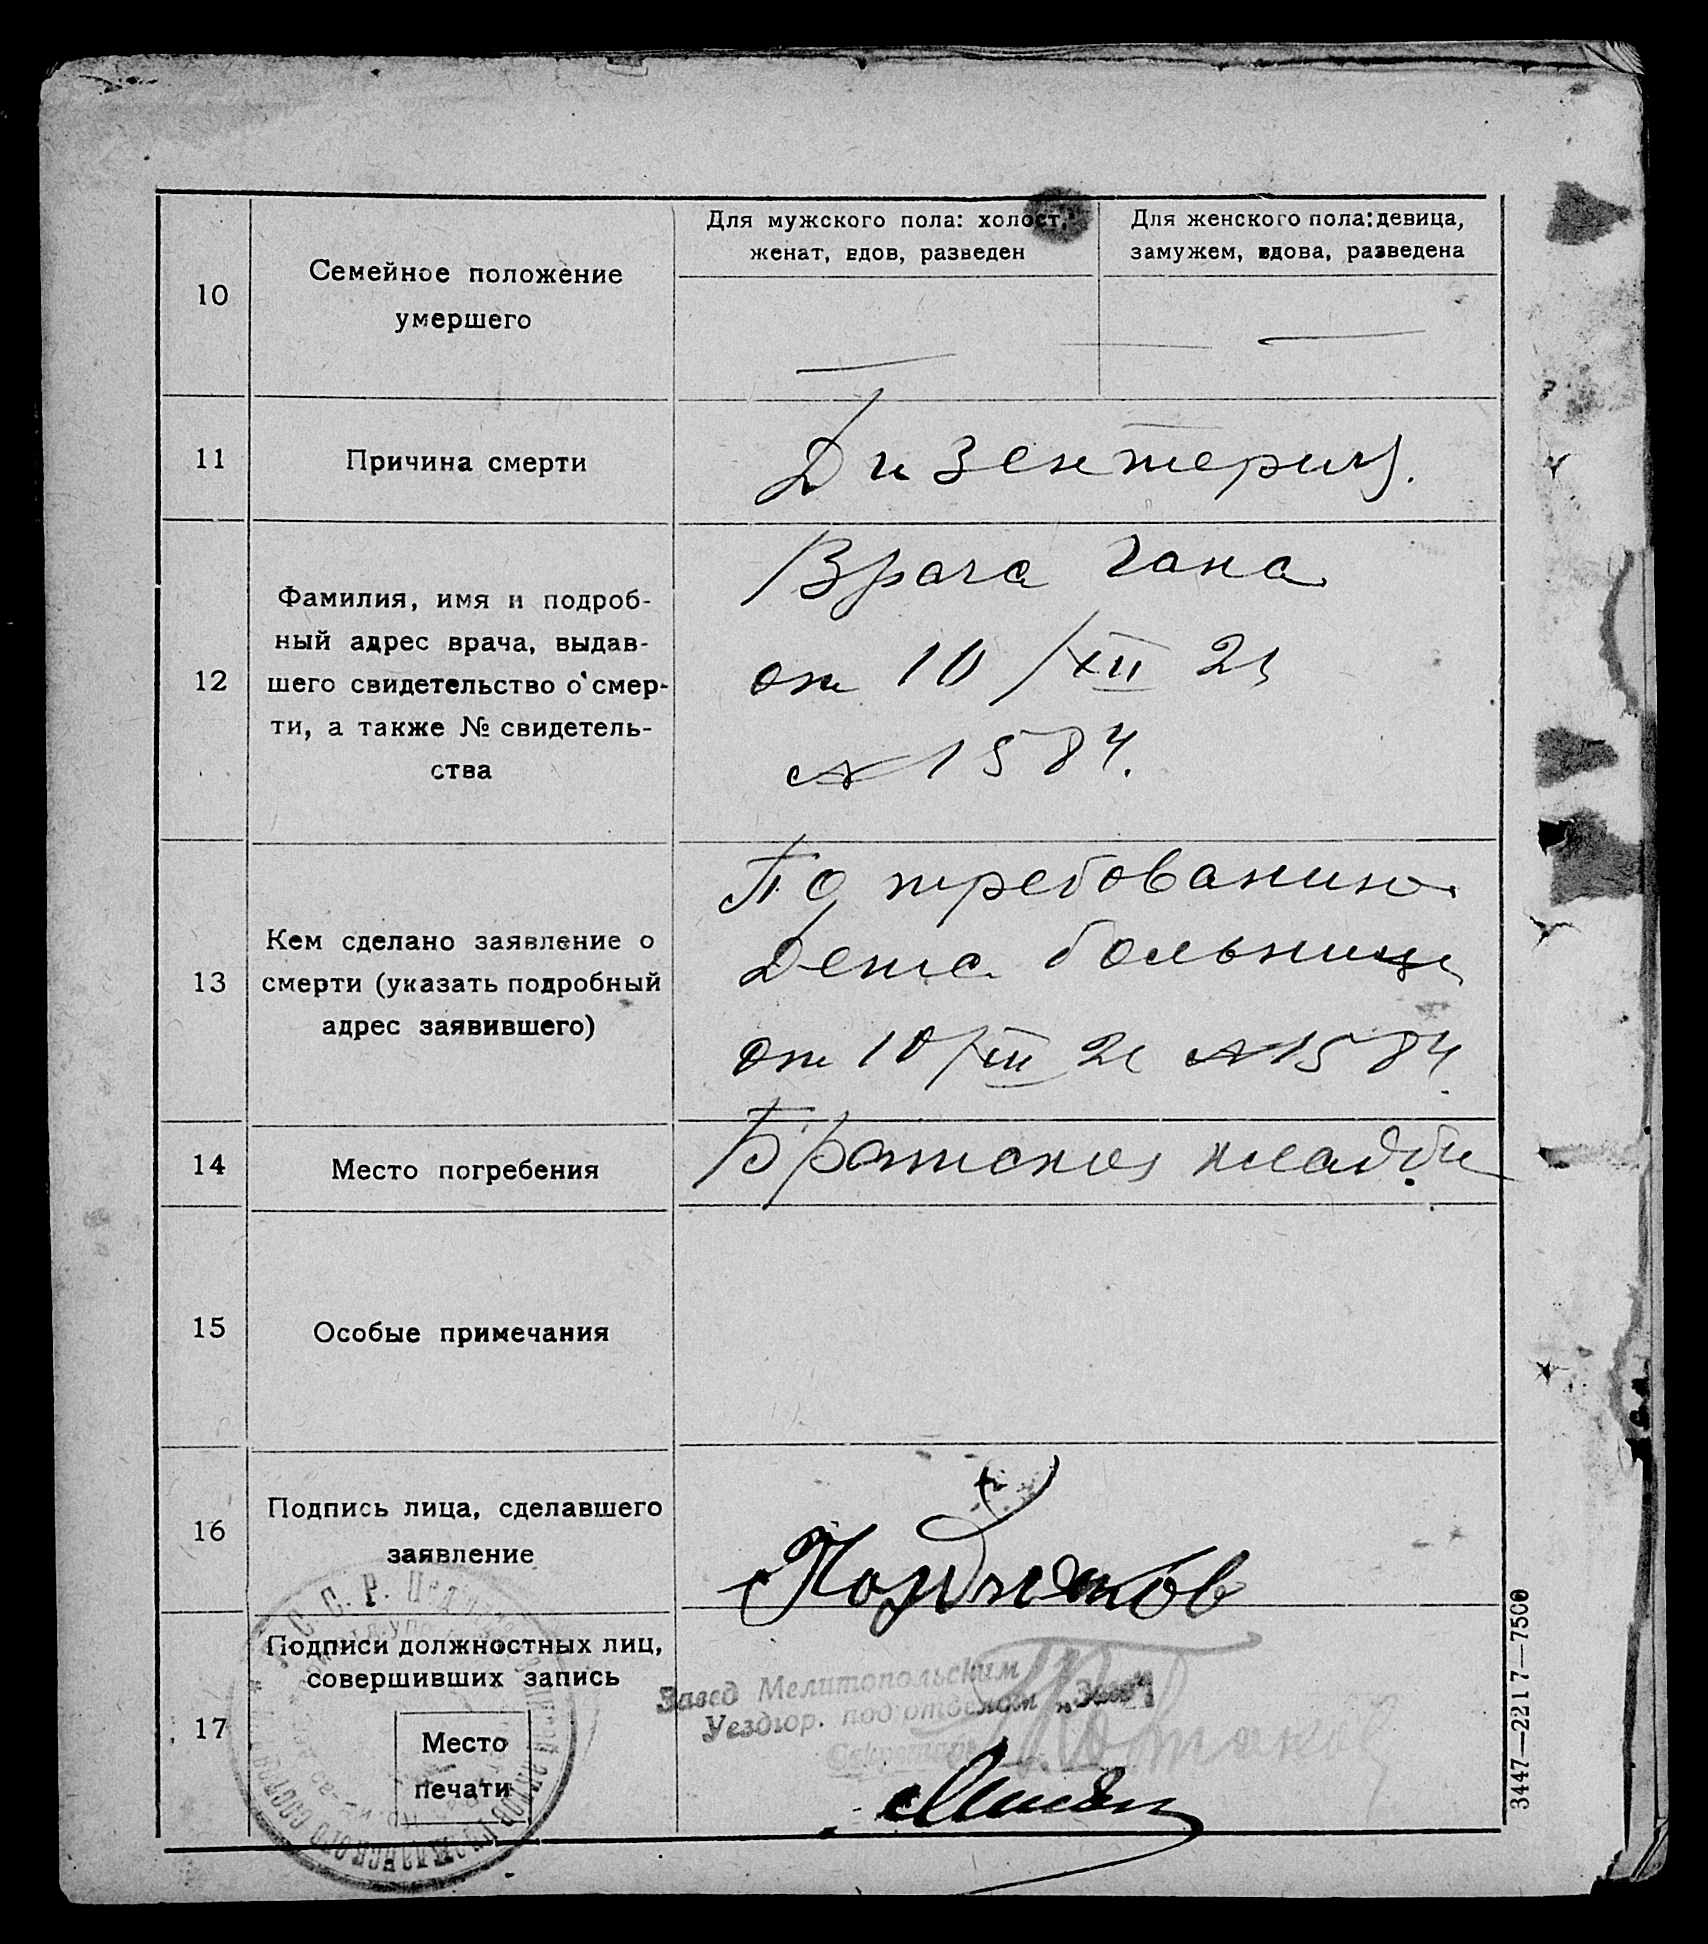 10
Семейное положение
умершего
Для мужского пола: холост,
женат, вдов, разведен
Для женского пола: девица,
замужем, вдова, разведена
11
Причина смерти
Дизентерия.
12
Фамилия, имя и подроб-
ный адрес врача, выдав-
шего свидетельство о смер-
ти, а также № свидетель-
ства
Врача Гана
от 10/XII 21
№ 1584.
13
Кем сделано заявление о
смерти (указать подробный
адрес заявившего)
По требованию
Детс. больницы
от 10/XII 21 № 1584
14
Место погребения
Братское кладби
15
Особые примечания
16
Подпись лица, сделавшего
заявление
17
Подписи должностных лиц,
совершивших запись
Место
печати
Завед Мелитопольским
Уездгор. подотделом „Загс"
Секретарь
3447—2217—7500